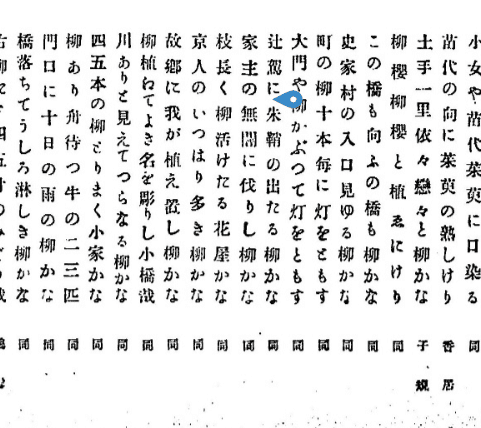 小女や苗代茱萸に口染る 同
苗代の向に茱萸の熟しけり 香居
土手一里依々戀々と柳かな 子規
柳櫻柳櫻と植ゑにけり 同
この橋も向ふの橋も柳かな 同
史家村の入口見ゆる柳かな 同
町の柳十本每に灯をともす 同
大門や柳かぶつて灯をともす 同
辻駕に朱鞘の出たる柳かな 同
家主の無間に伐りし柳かな 同
枝長く柳活けたる花屋かな 同
京人のいつはり多き柳かな 同
故鄕に我が植え置し柳かな 同
柳植ねてよき名を彫りし小橋哉 同
川ありと見えてつらなる柳かな 同
四五本の柳とりまく小家かな 同
柳あり舟待つ牛の二三匹 同
門口に十日の雨の柳かな 同
橋落ちてうしろ淋しき柳かな 同